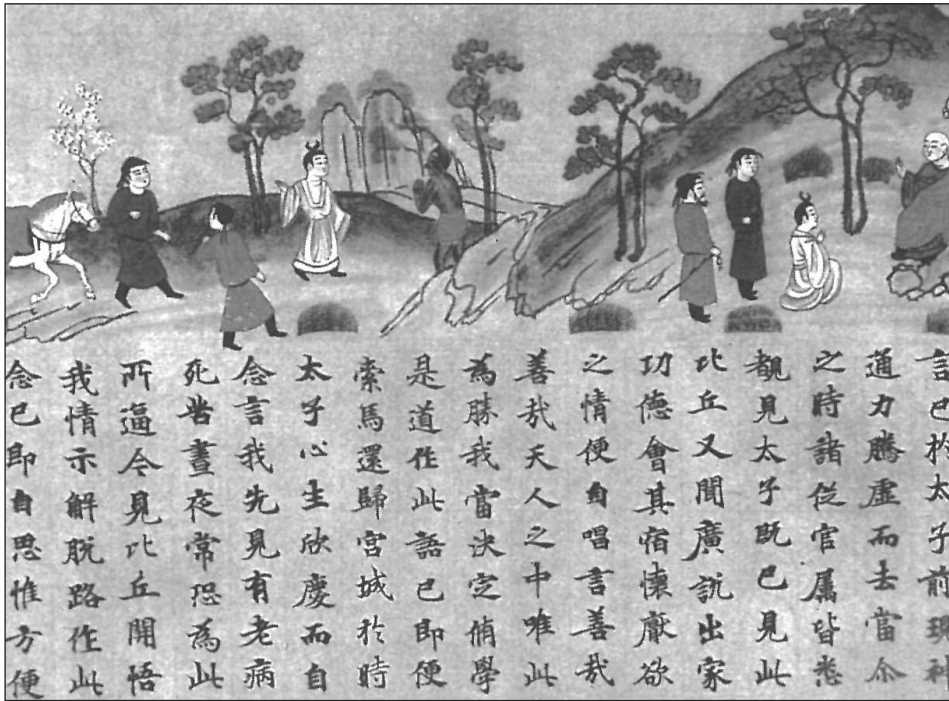 言已於太子前現神
通力騰虛而去當尒
之時諸従官屬皆悉
覩見太子既已見此
比丘又聞廣說出家
功德會其宿懷厭欲
之情便自唱言善哉
善哉天人之中唯此
為勝我當決定脩學
是道作此語已即便
索馬還歸宮城於時
太子心生欣慶而自
念言我先見有老病
死苦晝夜常恐為此
所逼今見比丘開悟
我情示解脫路作此
念已即自思惟方便